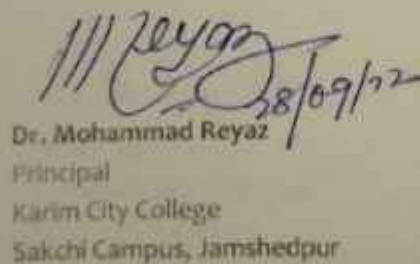 M Reyaz
28/09/22
Dr. Mohammad Reyaz
Principal
Karim City College
Sakchi Campus, Jamshedpur